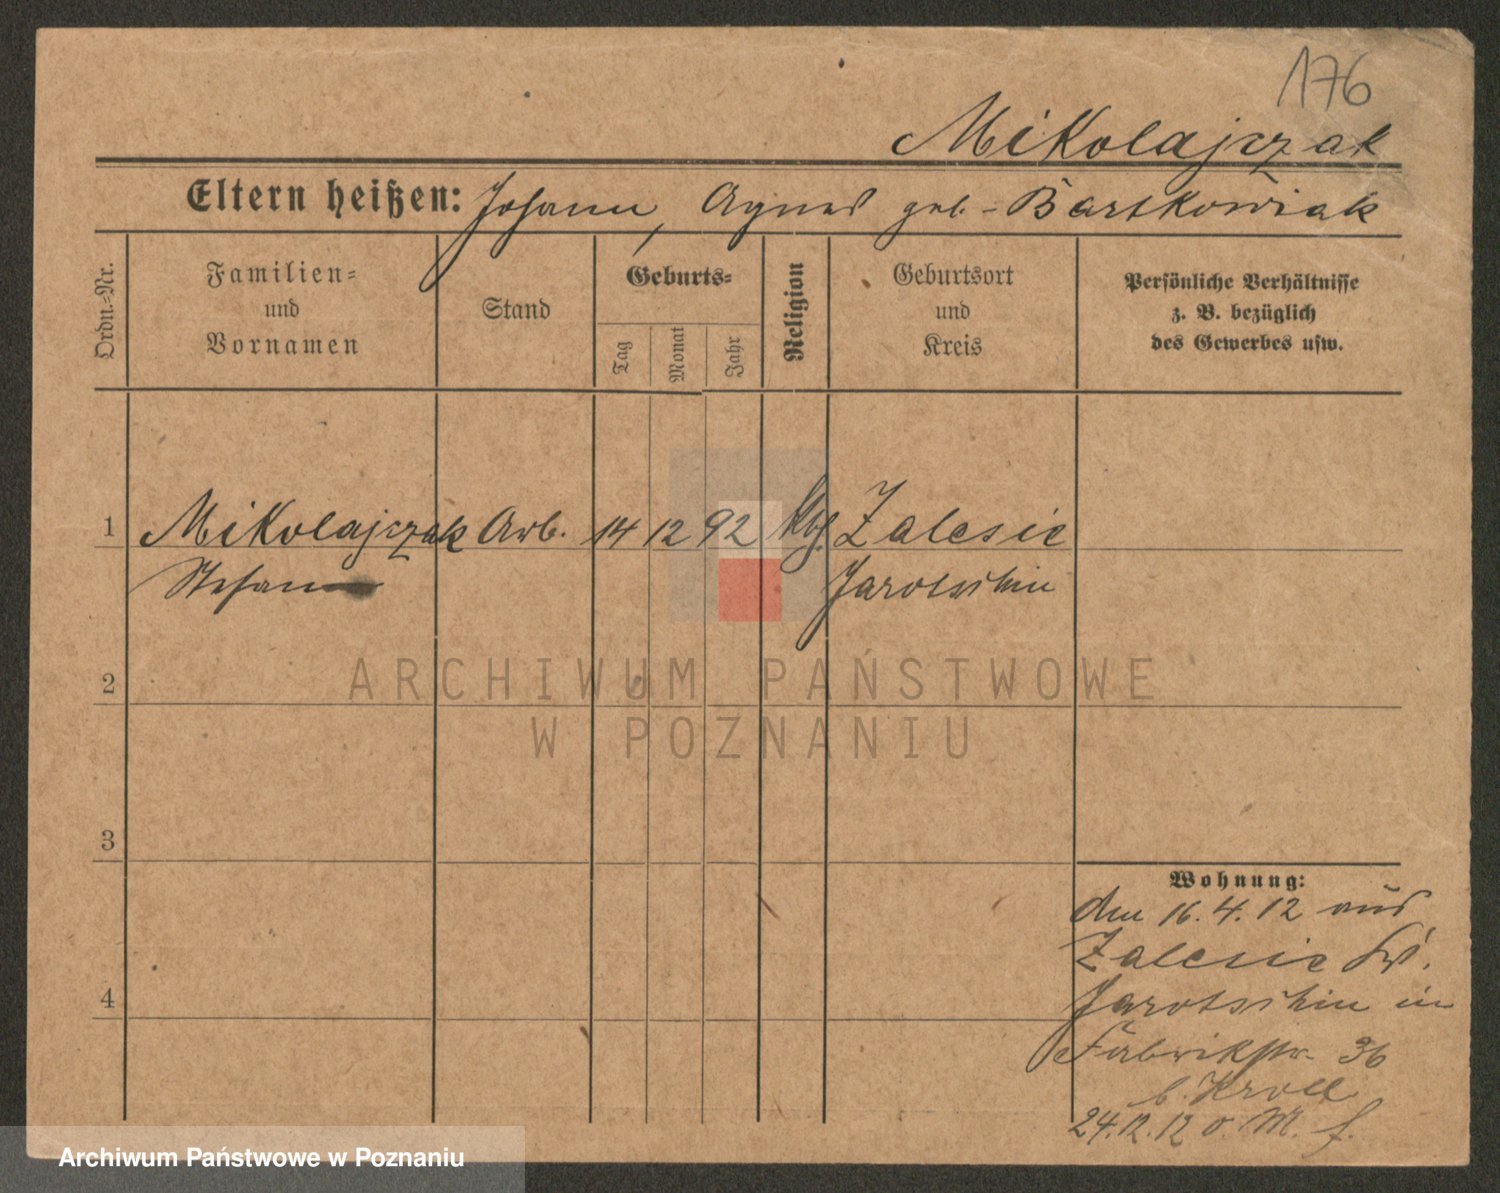 176
Mikolajszak
Eltern heißen: Johann, Agnes geb. Bartkowiak
Ordn.-Nr.
Familien-
und
Vornamen
Stand
Geburts-
Tag
Monat
Jahr
Religion
Geburtsort
und
Kreis
Persönliche Verhältnisse
z. B. bezüglich
des Gewerbes usw.
1 Mikolajszak Arb. 14 12 92 Kth. Zalesie
Stefan Jarotschin
2
ARCHIWUM PAŃSTWOWE
W POZNANIU
3
Wohnung:
den 16.4.12 aus
Zalesie Krs.
4
Jarotschin in
Fabrikstr. 36
b. Kroll
24.12.12 o. M. f.
Archiwum Państwowe w Poznaniu